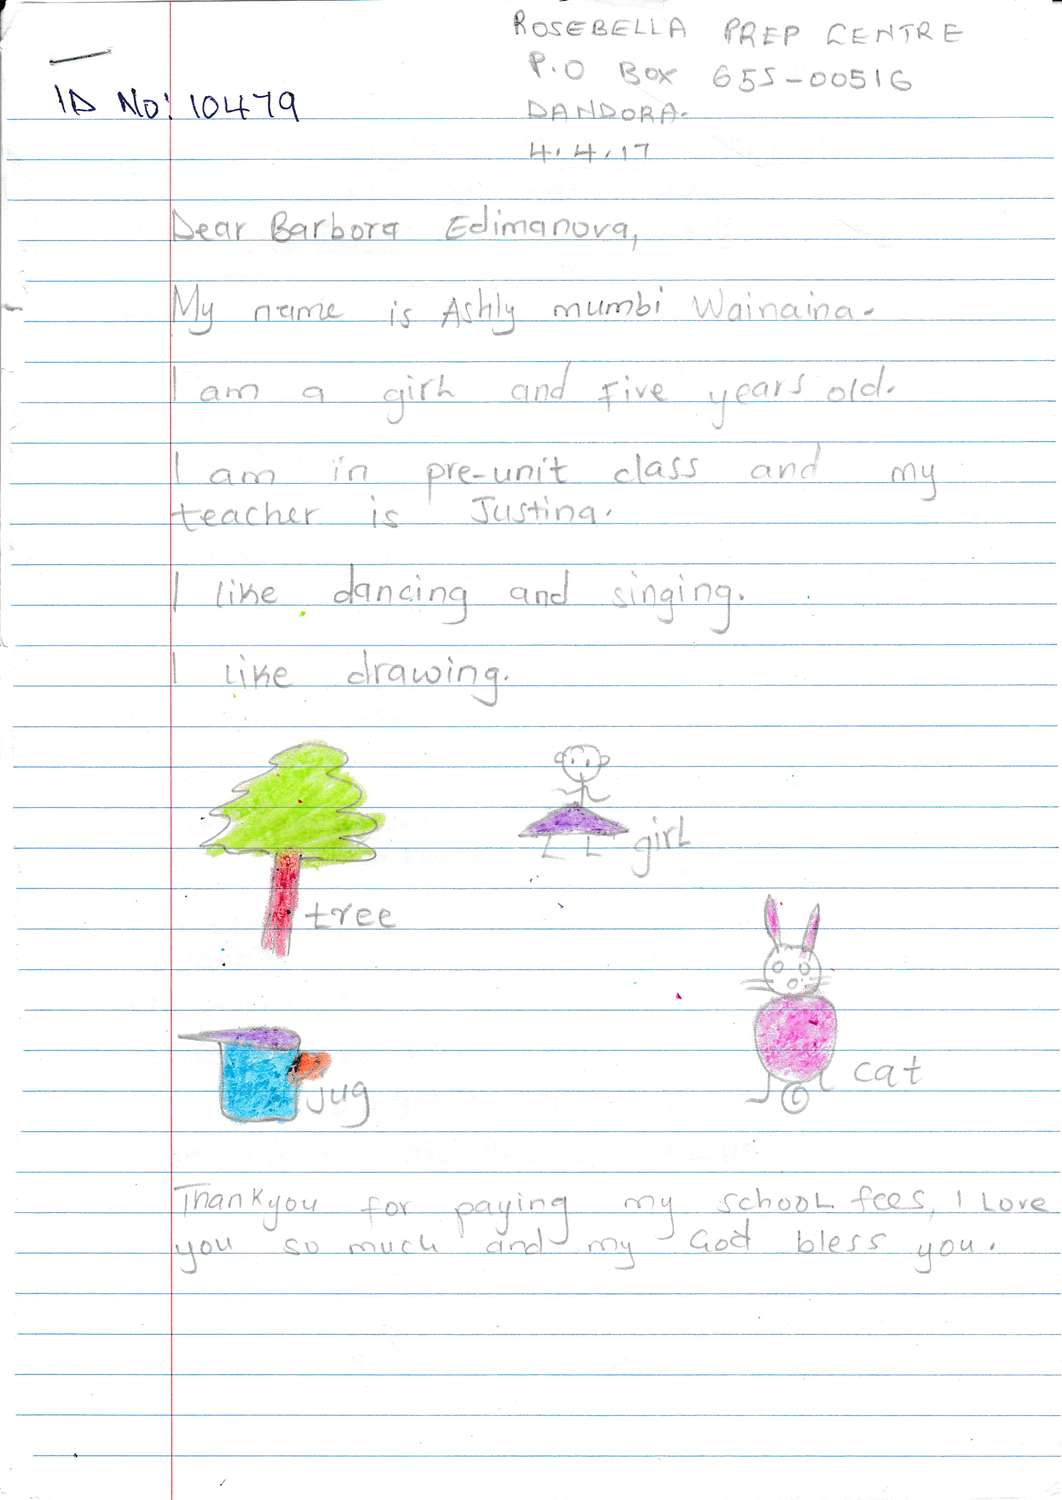 ROSEBELLA PREP CENTRE
P.O Box 655-00516
ID No: 10479
DANDORA.
4.4.17
Dear Barbora Edimanova,
My name is Ashly mumbi Wainaina.
I am a girl and Five years old.
I am in pre-unit class and my
teacher is Justina.
I like dancing and singing.
I like drawing.
girl
tree
cat
jug
Thankyou for paying my school fees, I Love
you so much and my God bless you.